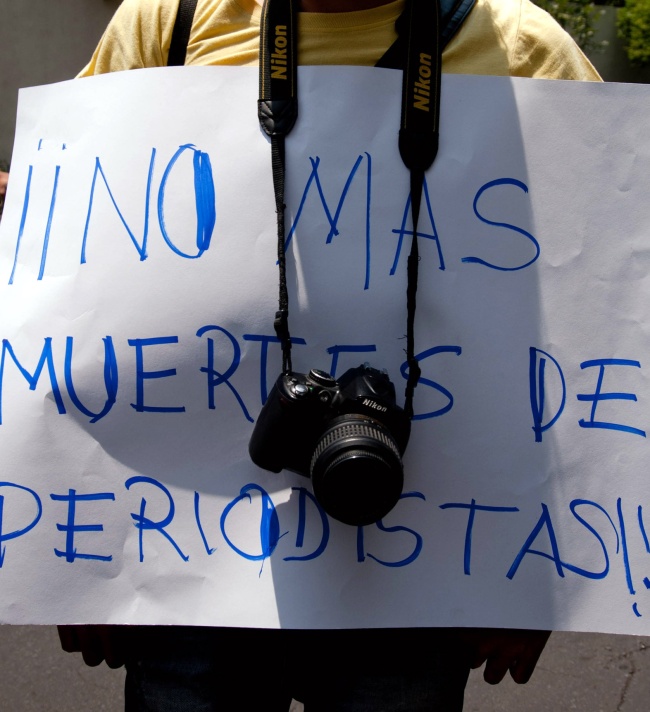 Nikon
Nikon
¡¡NO MAS
MUERTES DE
Nikon
PERIODISTAS!!